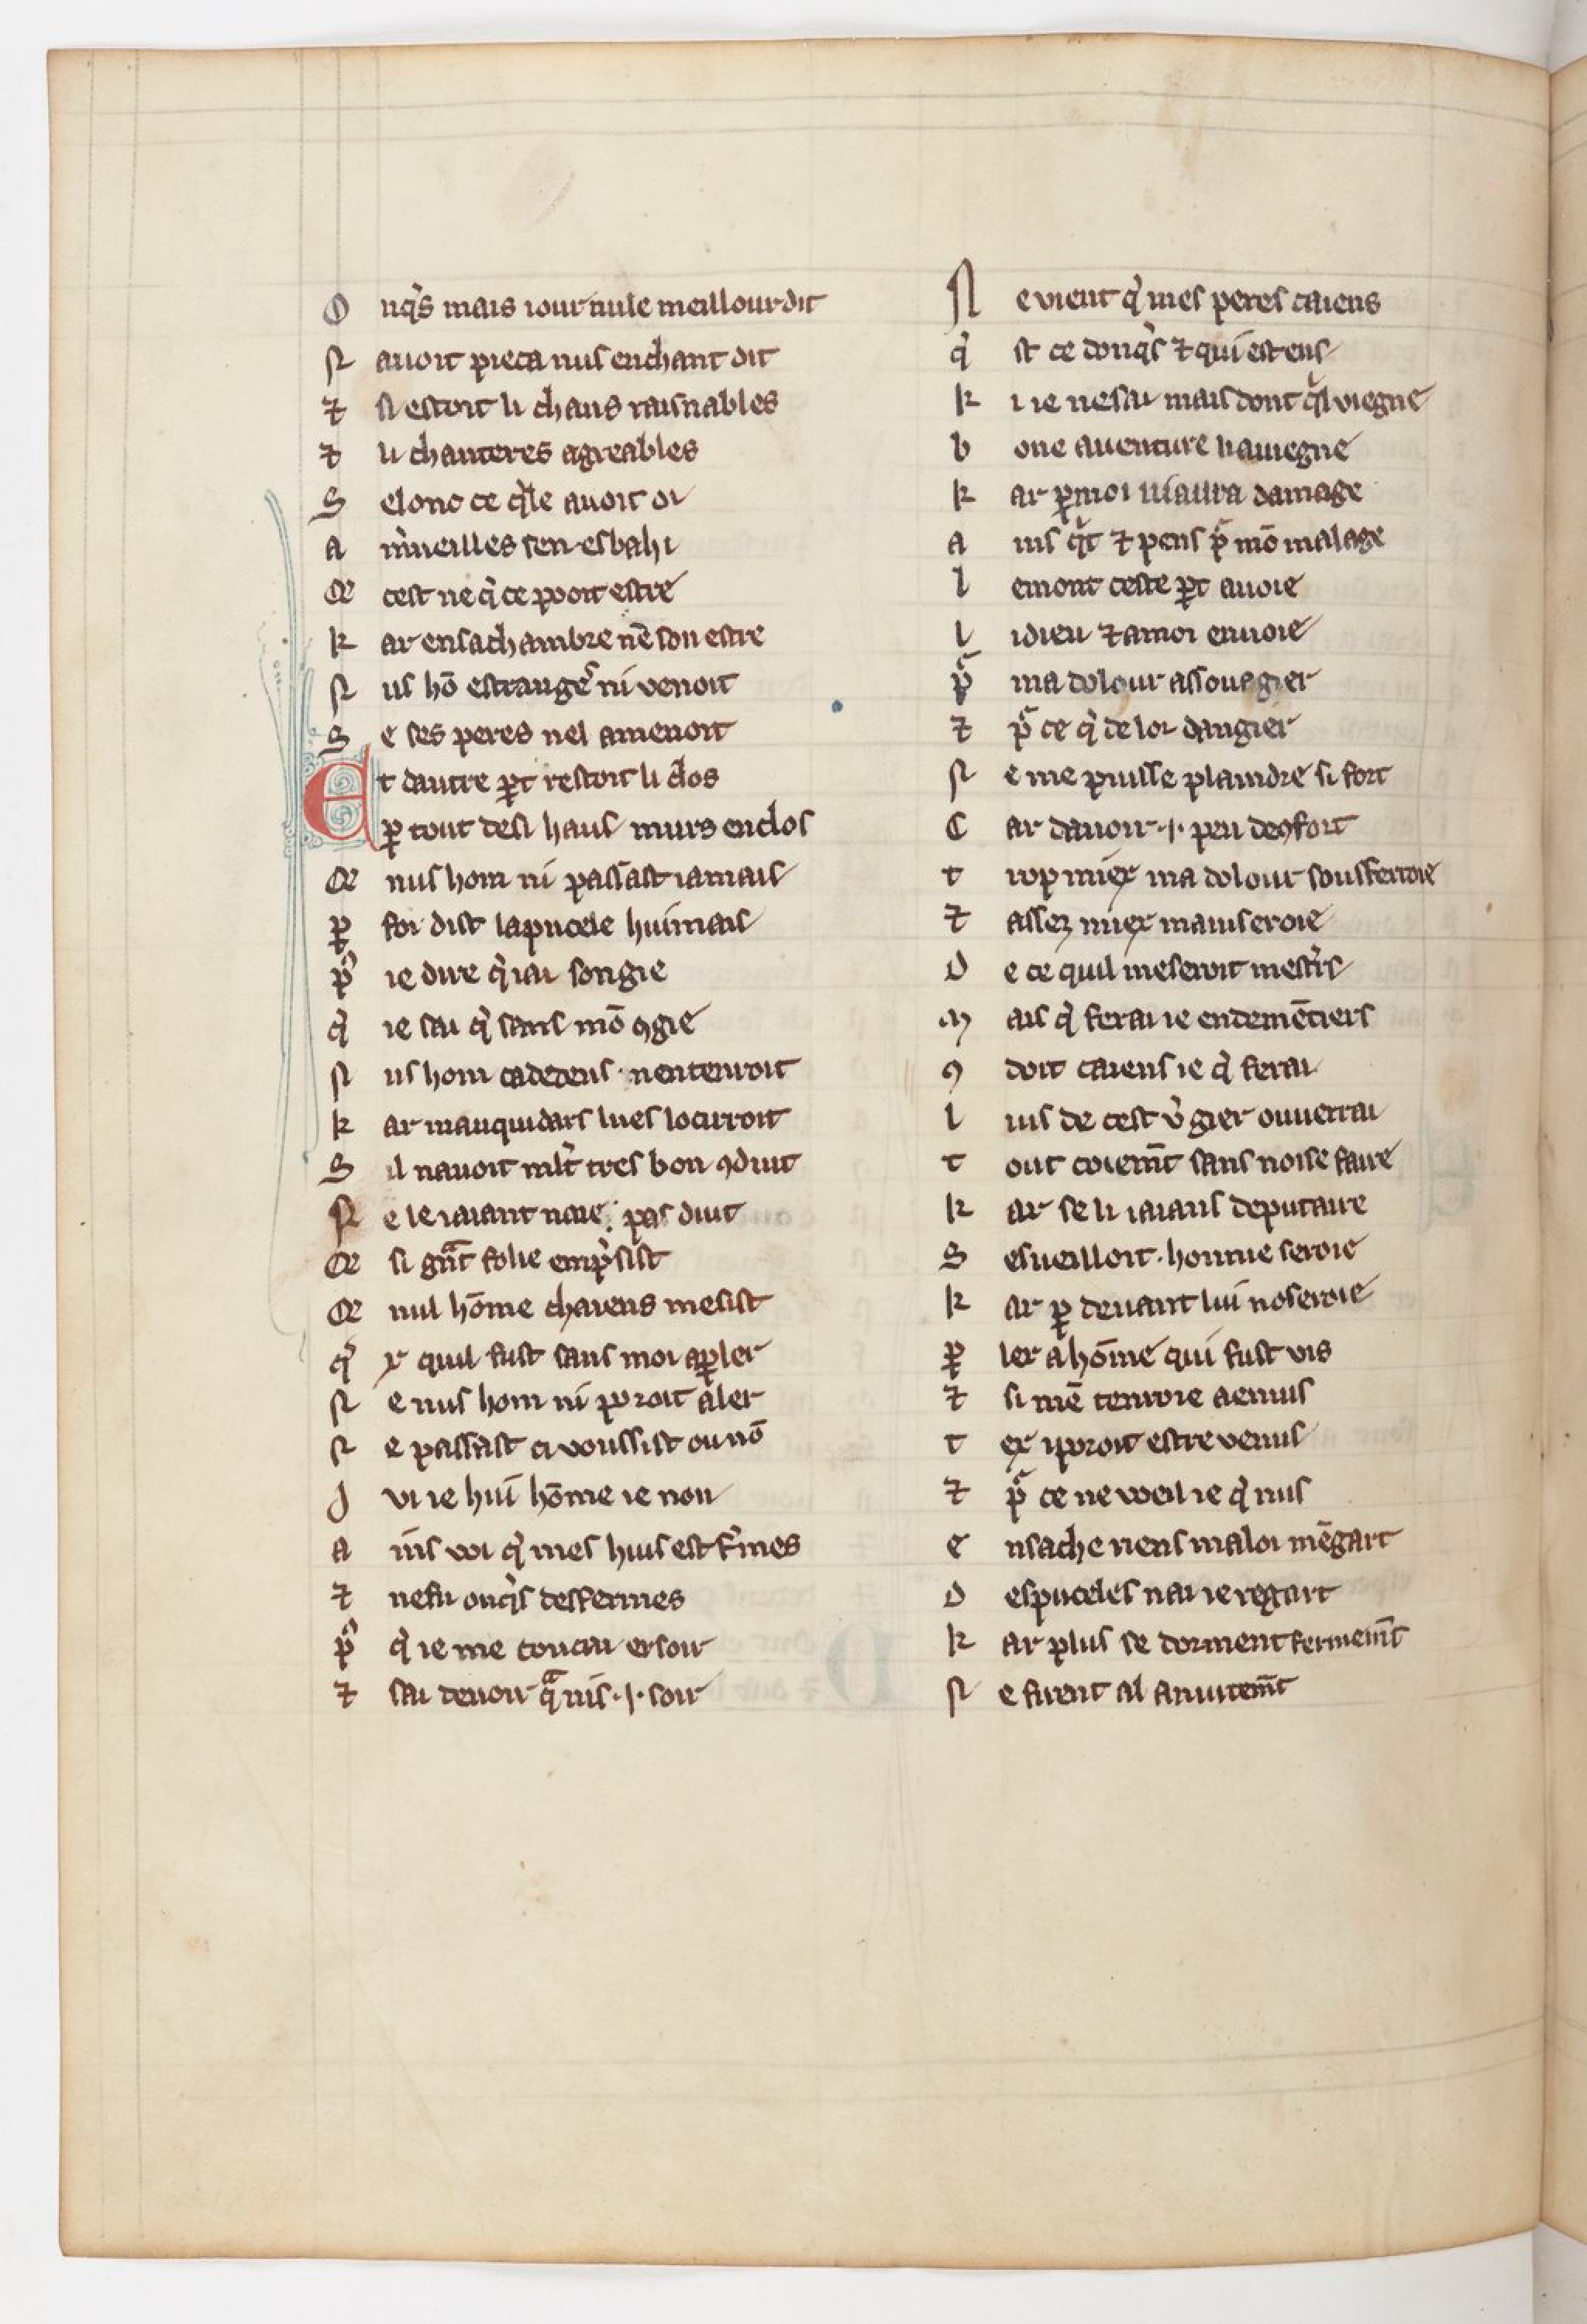 O nq̾s mais iour nule meillour dit
N auoit pieca nus en chant dit
⁊ si estoit li chans raisnables
⁊ li chanteres agreables
S elonc ce q̾le auoit oi
A m̾ueilles sen esbahi
Q̾ cest ne q̾ ce pooit estre
K ar en sa chambre nē son estre
N us hō estrang̾e ni venoit
S e ses peres nel amenoit
Et dautre ꝑt restoit li clos
ꝑ tout de si haus murs enclos
Q̾ nus hom ni passast iamais
ꝑ foi dist la pucele huimais
P̾ ie dire q̾ iai songie
Q̾ ie sai q̾ sans mō ꝯgie
N us hom cadedens nenterroit
K ar mauquidars lues locirroit
S il nauoit ml̾t tres bon ꝯduit
N e le iaiant naie pas duit
Q̾ si gn̄t folie emp̾sist
Q̾ nul hōme chaiens mesist
Q̾ x quil fust sans moi aꝑler
N e nus hom ni poroit aler
N e passast ci vousist ou nō
O vi ie hui hōme ie non
A ins voi q̾ mes huis est f̾mes
⁊ ne fu onq̾s desfermes
P̾ q̾ ie me coucai ersoir
⁊ sai deuoir qͣ nis .i. soir
N e vient q̾ mes peres caiens
Q̾ st ce donq̾s ⁊ qui est ens
K i ie ne sai mais dont q̾l viegne
B one auenture li auiegne
K ar ꝑ moi ni aura damage
A ins q̾t ⁊ pens p̾ mō malage
L em ont ceste ꝑt auoie
L i dieu ⁊ a moi enuoie
P̾ ma dolour assouagier
⁊ p̾ ce q̾ de loi dangier
N e me puisse plaindre si fort
C ar dauoir .i. peu de ꝯfort
T rop miex ma dolour sousferroie
⁊ assez miex maaiseroie
D e ce quil me seroit mest̾s
M ais q̾ ferai ie endemētiers
ꝯ doit caiens ie q̾ ferai
L uis de cest v̾gier ouuerrai
T out coiem̄t sans noise faire
K ar se li iaians deputaire
S esueilloit honnie seroie
K ar ꝑ deuant lui noseroie
ꝑ ler a hōme qui fust vis
⁊ si mē tenroie a enuis
T ex i poroit estre venus
⁊ p̾ ce ne voeil ie q̾ nus
E n sache riens ma loi mē gart
D es puceles nai ie regart
K ar plus se dorment fermem̄t
N e firent al anuitem̄t